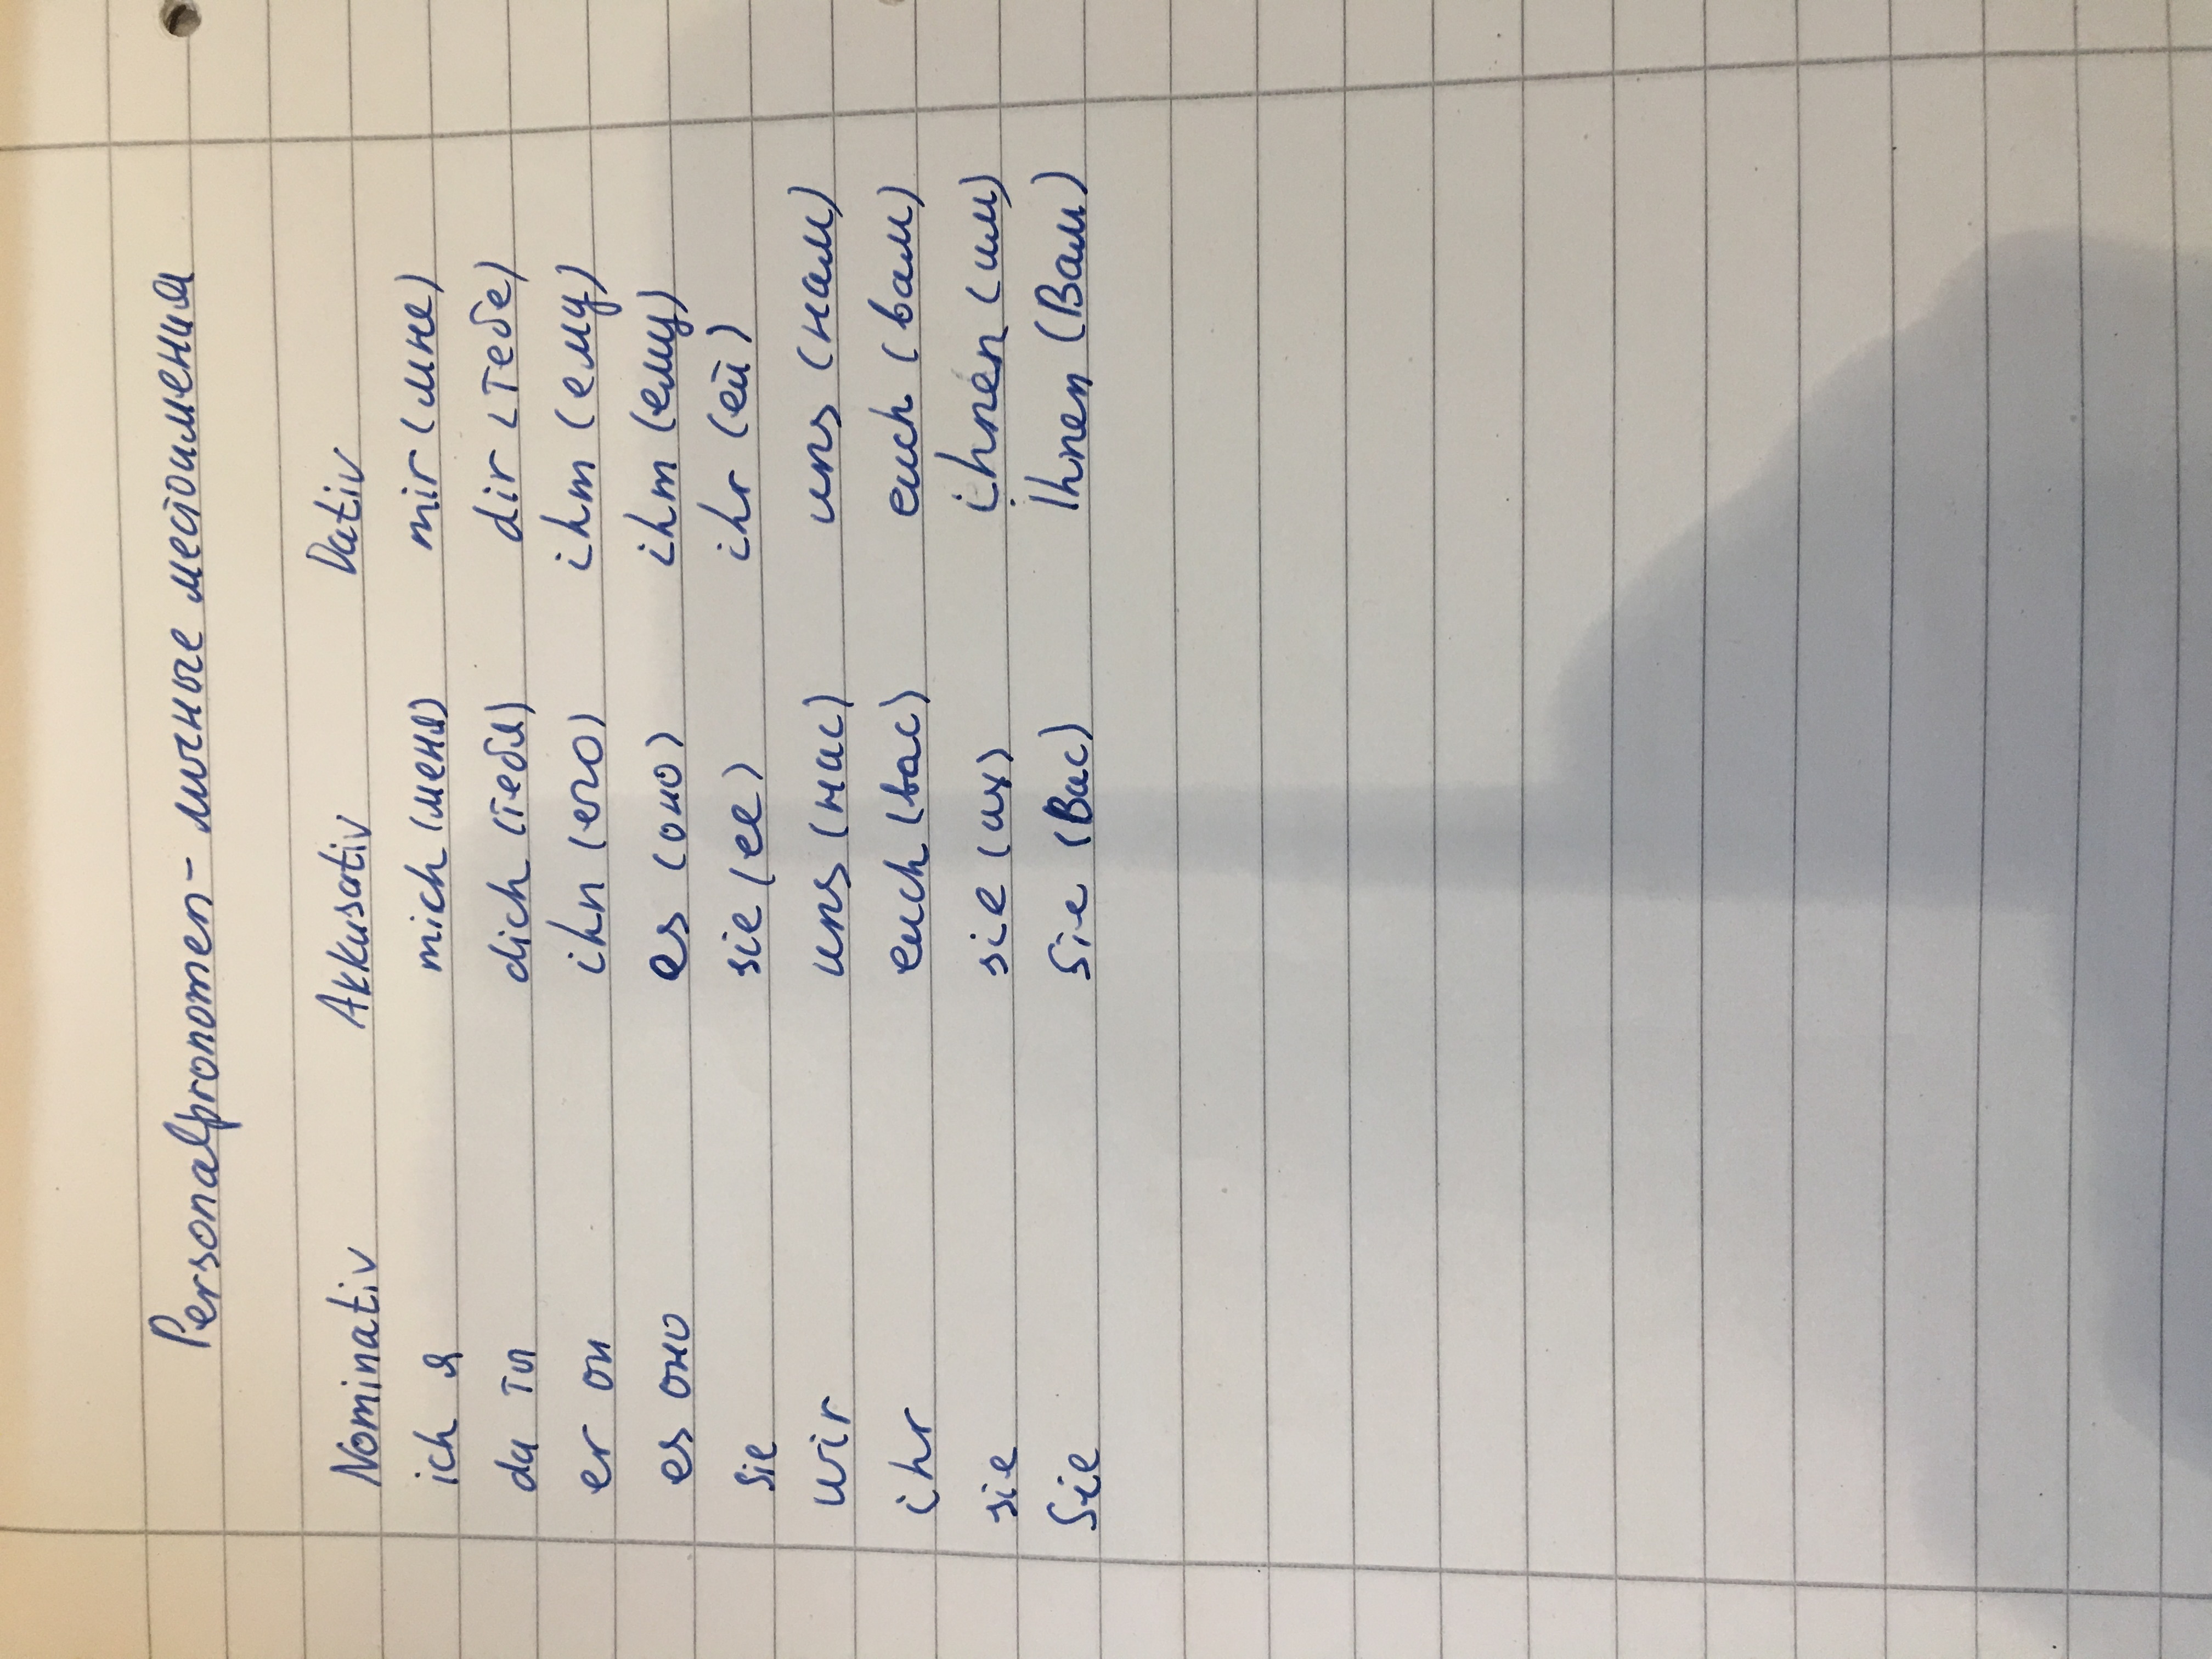 Personalpronomen - личные местоимения
Nominativ Akkusativ Dativ
ich я mich (меня) mir (мне)
du ты dich (тебя) dir (тебе)
er он ihn (его) ihm (ему)
es оно es (оно) ihm (ему)
sie sie (ее) ihr (ей)
wir uns (нас) uns (нам)
ihr euch (вас) euch (вам)
sie sie (их) ihnen (им)
Sie Sie (Вас) Ihnen (Вам)